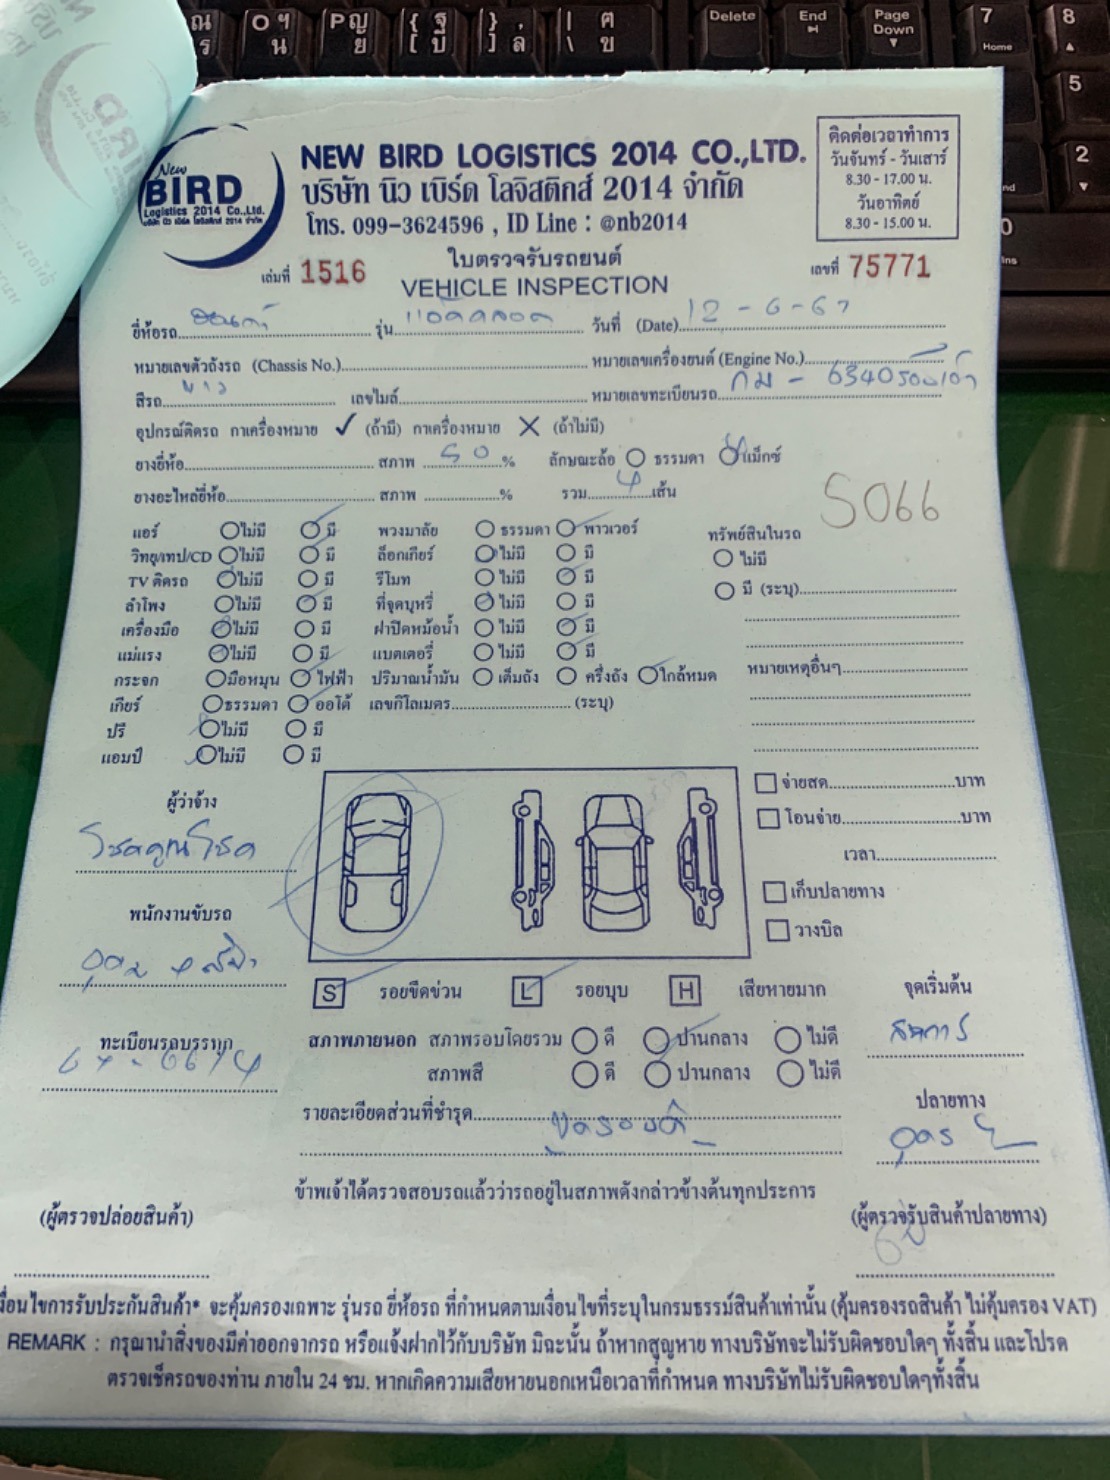 ณ ร O ฯ น P ญ ย { ฐ [ บ } , ] ล | ฅ \ ฃ Delete End Page Down 7 Home 8
5
2
New
BIRD
Logistics 2014 Co.,Ltd.
บริษัท นิว เบิร์ด โลจิสติกส์ 2014 จำกัด
NEW BIRD LOGISTICS 2014 CO.,LTD.
บริษัท นิว เบิร์ด โลจิสติกส์ 2014 จำกัด
โทร. 099-3624596 , ID Line : @nb2014
ติดต่อเวลาทำการ
วันจันทร์ - วันเสาร์
8.30 - 17.00 น.
วันอาทิตย์
8.30 - 15.00 น.
ใบตรวจรับรถยนต์
เล่มที่ 1516 VEHICLE INSPECTION เลขที่ 75771
ยี่ห้อรถ ฮอนด้า รุ่น แอคคอด วันที่ (Date) 12 - 6 - 67
หมายเลขตัวถังรถ (Chassis No.) หมายเลขเครื่องยนต์ (Engine No.)
สีรถ ขาว เลขไมล์ หมายเลขทะเบียนรถ กม - 6340
อุปกรณ์ติดรถ กาเครื่องหมาย ✓ (ถ้ามี) กาเครื่องหมาย ✕ (ถ้าไม่มี)
ยางยี่ห้อ สภาพ 50 % ลักษณะล้อ ธรรมดา แม็กซ์
ยางอะไหล่ยี่ห้อ สภาพ % รวม 4 เส้น
5066
แอร์ ไม่มี มี พวงมาลัย ธรรมดา พาวเวอร์ ทรัพย์สินในรถ
วิทยุ/เทป/CD ไม่มี มี ล็อกเกียร์ ไม่มี มี ไม่มี
TV ติดรถ ไม่มี มี รีโมท ไม่มี มี มี (ระบุ)
ลำโพง ไม่มี มี ที่จุดบุหรี่ ไม่มี มี
เครื่องมือ ไม่มี มี ฝาปิดหม้อน้ำ ไม่มี มี
แม่แรง ไม่มี มี แบตเตอรี่ ไม่มี มี หมายเหตุอื่นๆ
กระจก มือหมุน ไฟฟ้า ปริมาณน้ำมัน เต็มถัง ครึ่งถัง ใกล้หมด
เกียร์ ธรรมดา ออโต้ เลขกิโลเมตร (ระบุ)
ปรี ไม่มี มี
แอมป์ ไม่มี มี
ผู้ว่าจ้าง
โชคคูณโชค
พนักงานขับรถ
ทะเบียนรถบรรทุก
จ่ายสด บาท
โอนจ่าย บาท
เวลา
เก็บปลายทาง
วางบิล
S รอยขีดข่วน L รอยบุบ H เสียหายมาก จุดเริ่มต้น
สภาพภายนอก สภาพรอบโดยรวม ดี ปานกลาง ไม่ดี
สภาพสี ดี ปานกลาง ไม่ดี
รายละเอียดส่วนที่ชำรุด
ปลายทาง
อุดร
ข้าพเจ้าได้ตรวจสอบรถแล้วว่ารถอยู่ในสภาพดังกล่าวข้างต้นทุกประการ
(ผู้ตรวจปล่อยสินค้า) (ผู้ตรวจรับสินค้าปลายทาง)
งื่อนไขการรับประกันสินค้า* จะคุ้มครองเฉพาะ รุ่นรถ ยี่ห้อรถ ที่กำหนดตามเงื่อนไขที่ระบุในกรมธรรม์สินค้าเท่านั้น (คุ้มครองรถสินค้า ไม่คุ้มครอง VAT)
REMARK : กรุณานำสิ่งของมีค่าออกจากรถ หรือแจ้งฝากไว้กับบริษัท มิฉะนั้น ถ้าหากสูญหาย ทางบริษัทจะไม่รับผิดชอบใดๆ ทั้งสิ้น และโปรด
ตรวจเช็ครถของท่าน ภายใน 24 ชม. หากเกิดความเสียหายนอกเหนือเวลาที่กำหนด ทางบริษัทไม่รับผิดชอบใดๆทั้งสิ้น